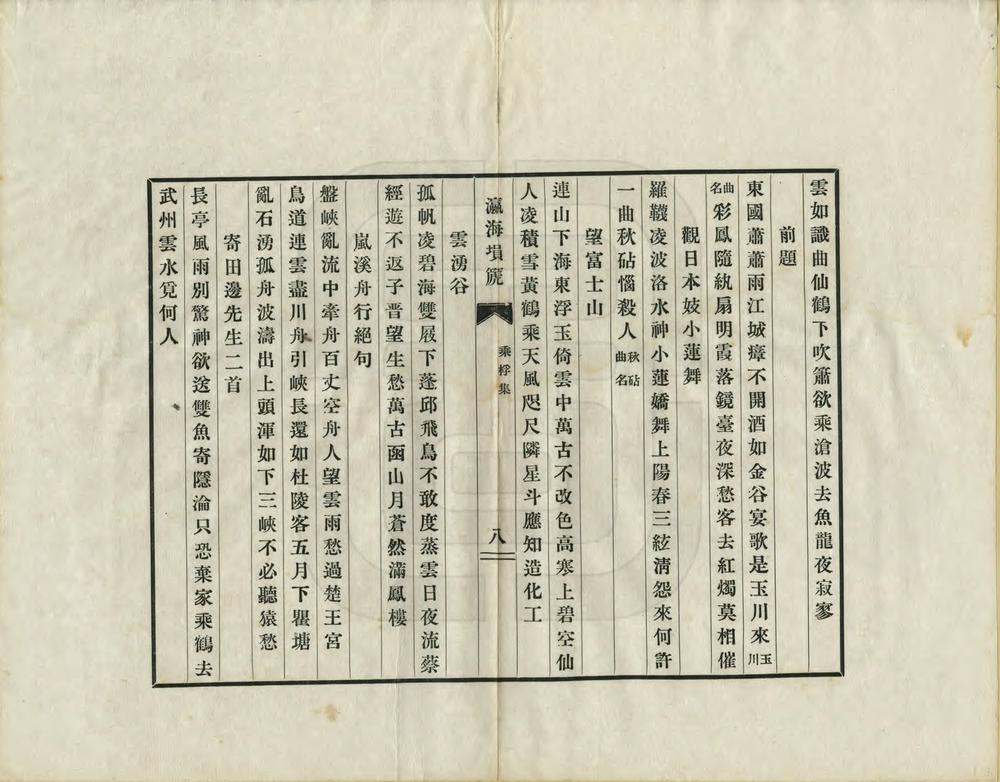 雲如識曲仙鶴下吹簫欲乘滄波去魚龍夜寂寥
前題
東國蕭蕭雨江城瘴不開酒如金谷宴歌是玉川來玉川
曲名彩鳳隨紈扇明霞落鏡臺夜深愁客去紅燭莫相催
觀日本妓小蓮舞
羅韈凌波洛水神小蓮嬌舞上陽春三絃淸怨來何許
一曲秋砧惱殺人秋砧曲名
望富士山
連山下海東浮玉倚雲中萬古不改色高寒上碧空仙
人凌積雪黃鶴乘天風咫尺隣星斗應知造化工
瀛海塤篪
乘桴集
八
雲湧谷
孤帆凌碧海雙屐下蓬邱飛鳥不敢度蒸雲日夜流蔡
經遊不返子晉望生愁萬古函山月蒼然滿鳳樓
嵐溪舟行絕句
盤峽亂流中牽舟百丈空舟人望雲雨愁過楚王宮
鳥道連雲盡川舟引峽長還如杜陵客五月下瞿塘
亂石湧孤舟波濤出上頭渾如下三峽不必聽猿愁
寄田邊先生二首
長亭風雨別驚神欲送雙魚寄隱淪只恐棄家乘鶴去
武州雲水覓何人